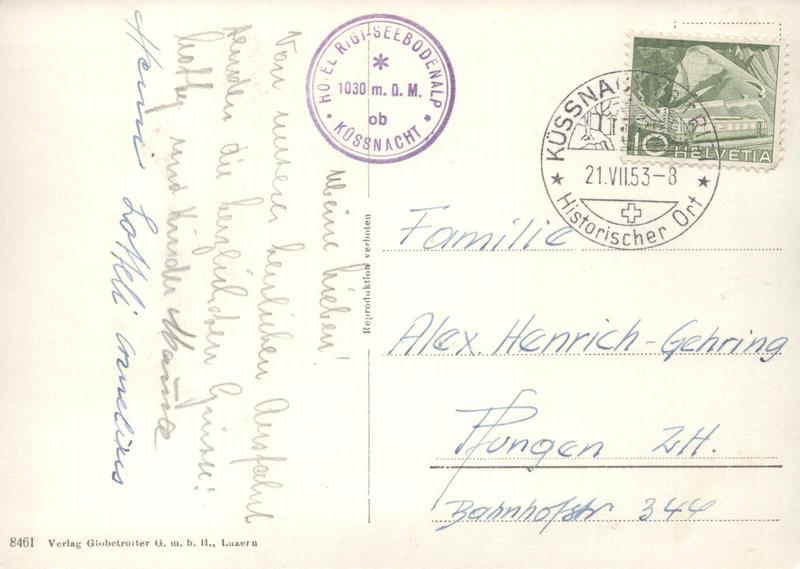 Meine Lieben!
Von unserer herrlichen Ausfahrt
senden die herzlichsten Grüsse!
und Kinder
Heini Lotteli
HOTEL RIGI-SEEBODENALP
1030 m. ü. M.
ob
KÜSSNACHT
KÜSSNACHT
21.VII.53-8
Historischer Ort
10 HELVETIA
Reproduktion verboten
Familie
Alex. Henrich-Gehring
Pfungen ZH.
Bahnhofstr 344
8461 Verlag Globetrotter G. m. b. H., Luzern